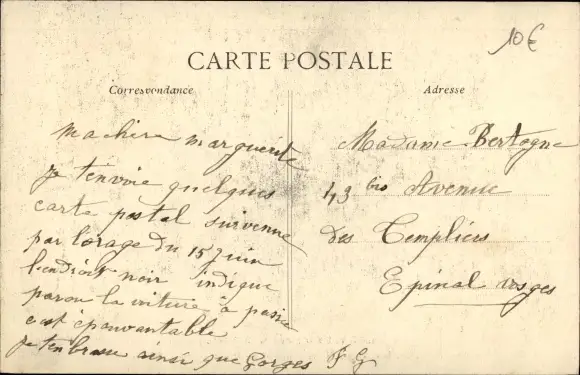 10€
CARTE POSTALE
Correspondance
Adresse
Ma chère marguerite
Je t'envoie quelques
carte postal survenue
par l'orage du 15 juin
l'endroit noir indique
parou la voiture à passé
c'est épouvantable
Je t'enbrasse ainsi que Gorges F G
Madame Bertogne
43 bis Avenue
des Templiers
Epinal Vosges